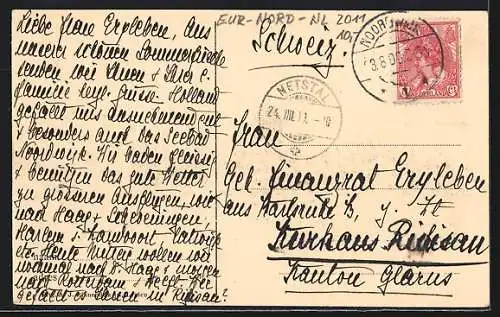 EUR-NORD-NL 2011
Liebe Frau Erxleben, Aus
unserer schönen Sommerfrische
senden wir Ihnen und Ihrer l.
Familie Grüsse. Holland
gefällt uns
besonders auch das Seebad
Noordwijk. Wir baden fleissig
benützen das gute Wetter
zu grösseren Ausflügen, wie
nach Haag & Scheveningen,
Harlem & Zandvoort, Katwijk
etc. Heute Mittag wollen wir
nochmal nach d. Haag & morgen
nach Rotterdam & Delft. Wie
gefällt es Ihnen in Risisau?
Schweiz.
NOORDWIJK
NEDERLAND
NETSTAL
24. VIII. 11. - 10
Frau
Geh. Finanzrat Erxleben
aus Karlsruhe B, z. Zt
Kurhaus Risisau
Kanton Glarus